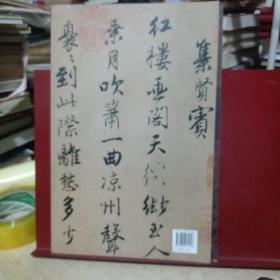 集賢賓
紅樓畫閣天縹緲玉人
乘月吹簫一曲凉州聲
裊〻到此際離愁多少